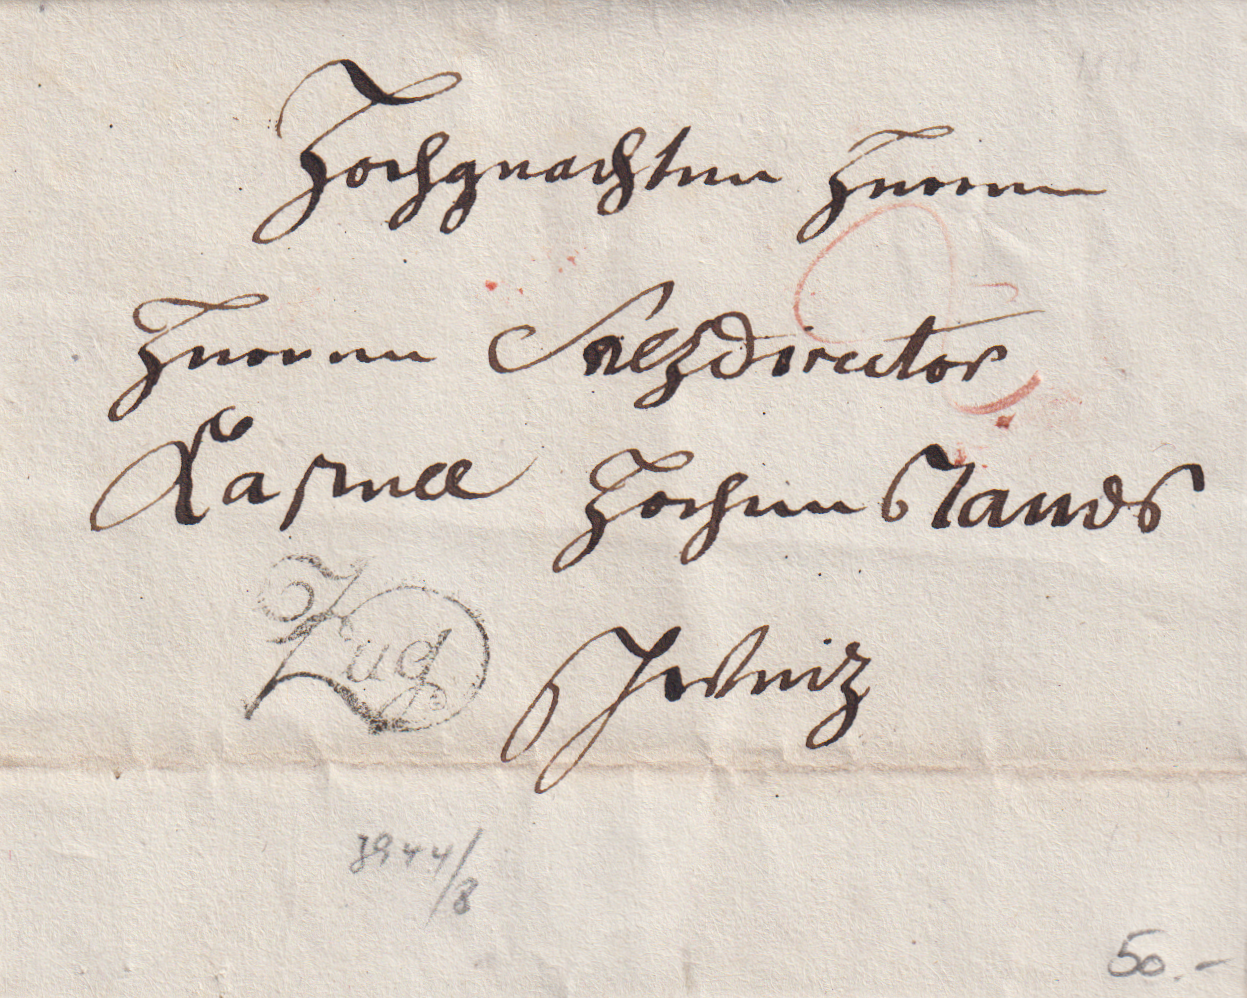 Hochgeachten Herren
Herren Salzdirector
Hochen Stands
Zug
Schweiz
3944/8
50.-